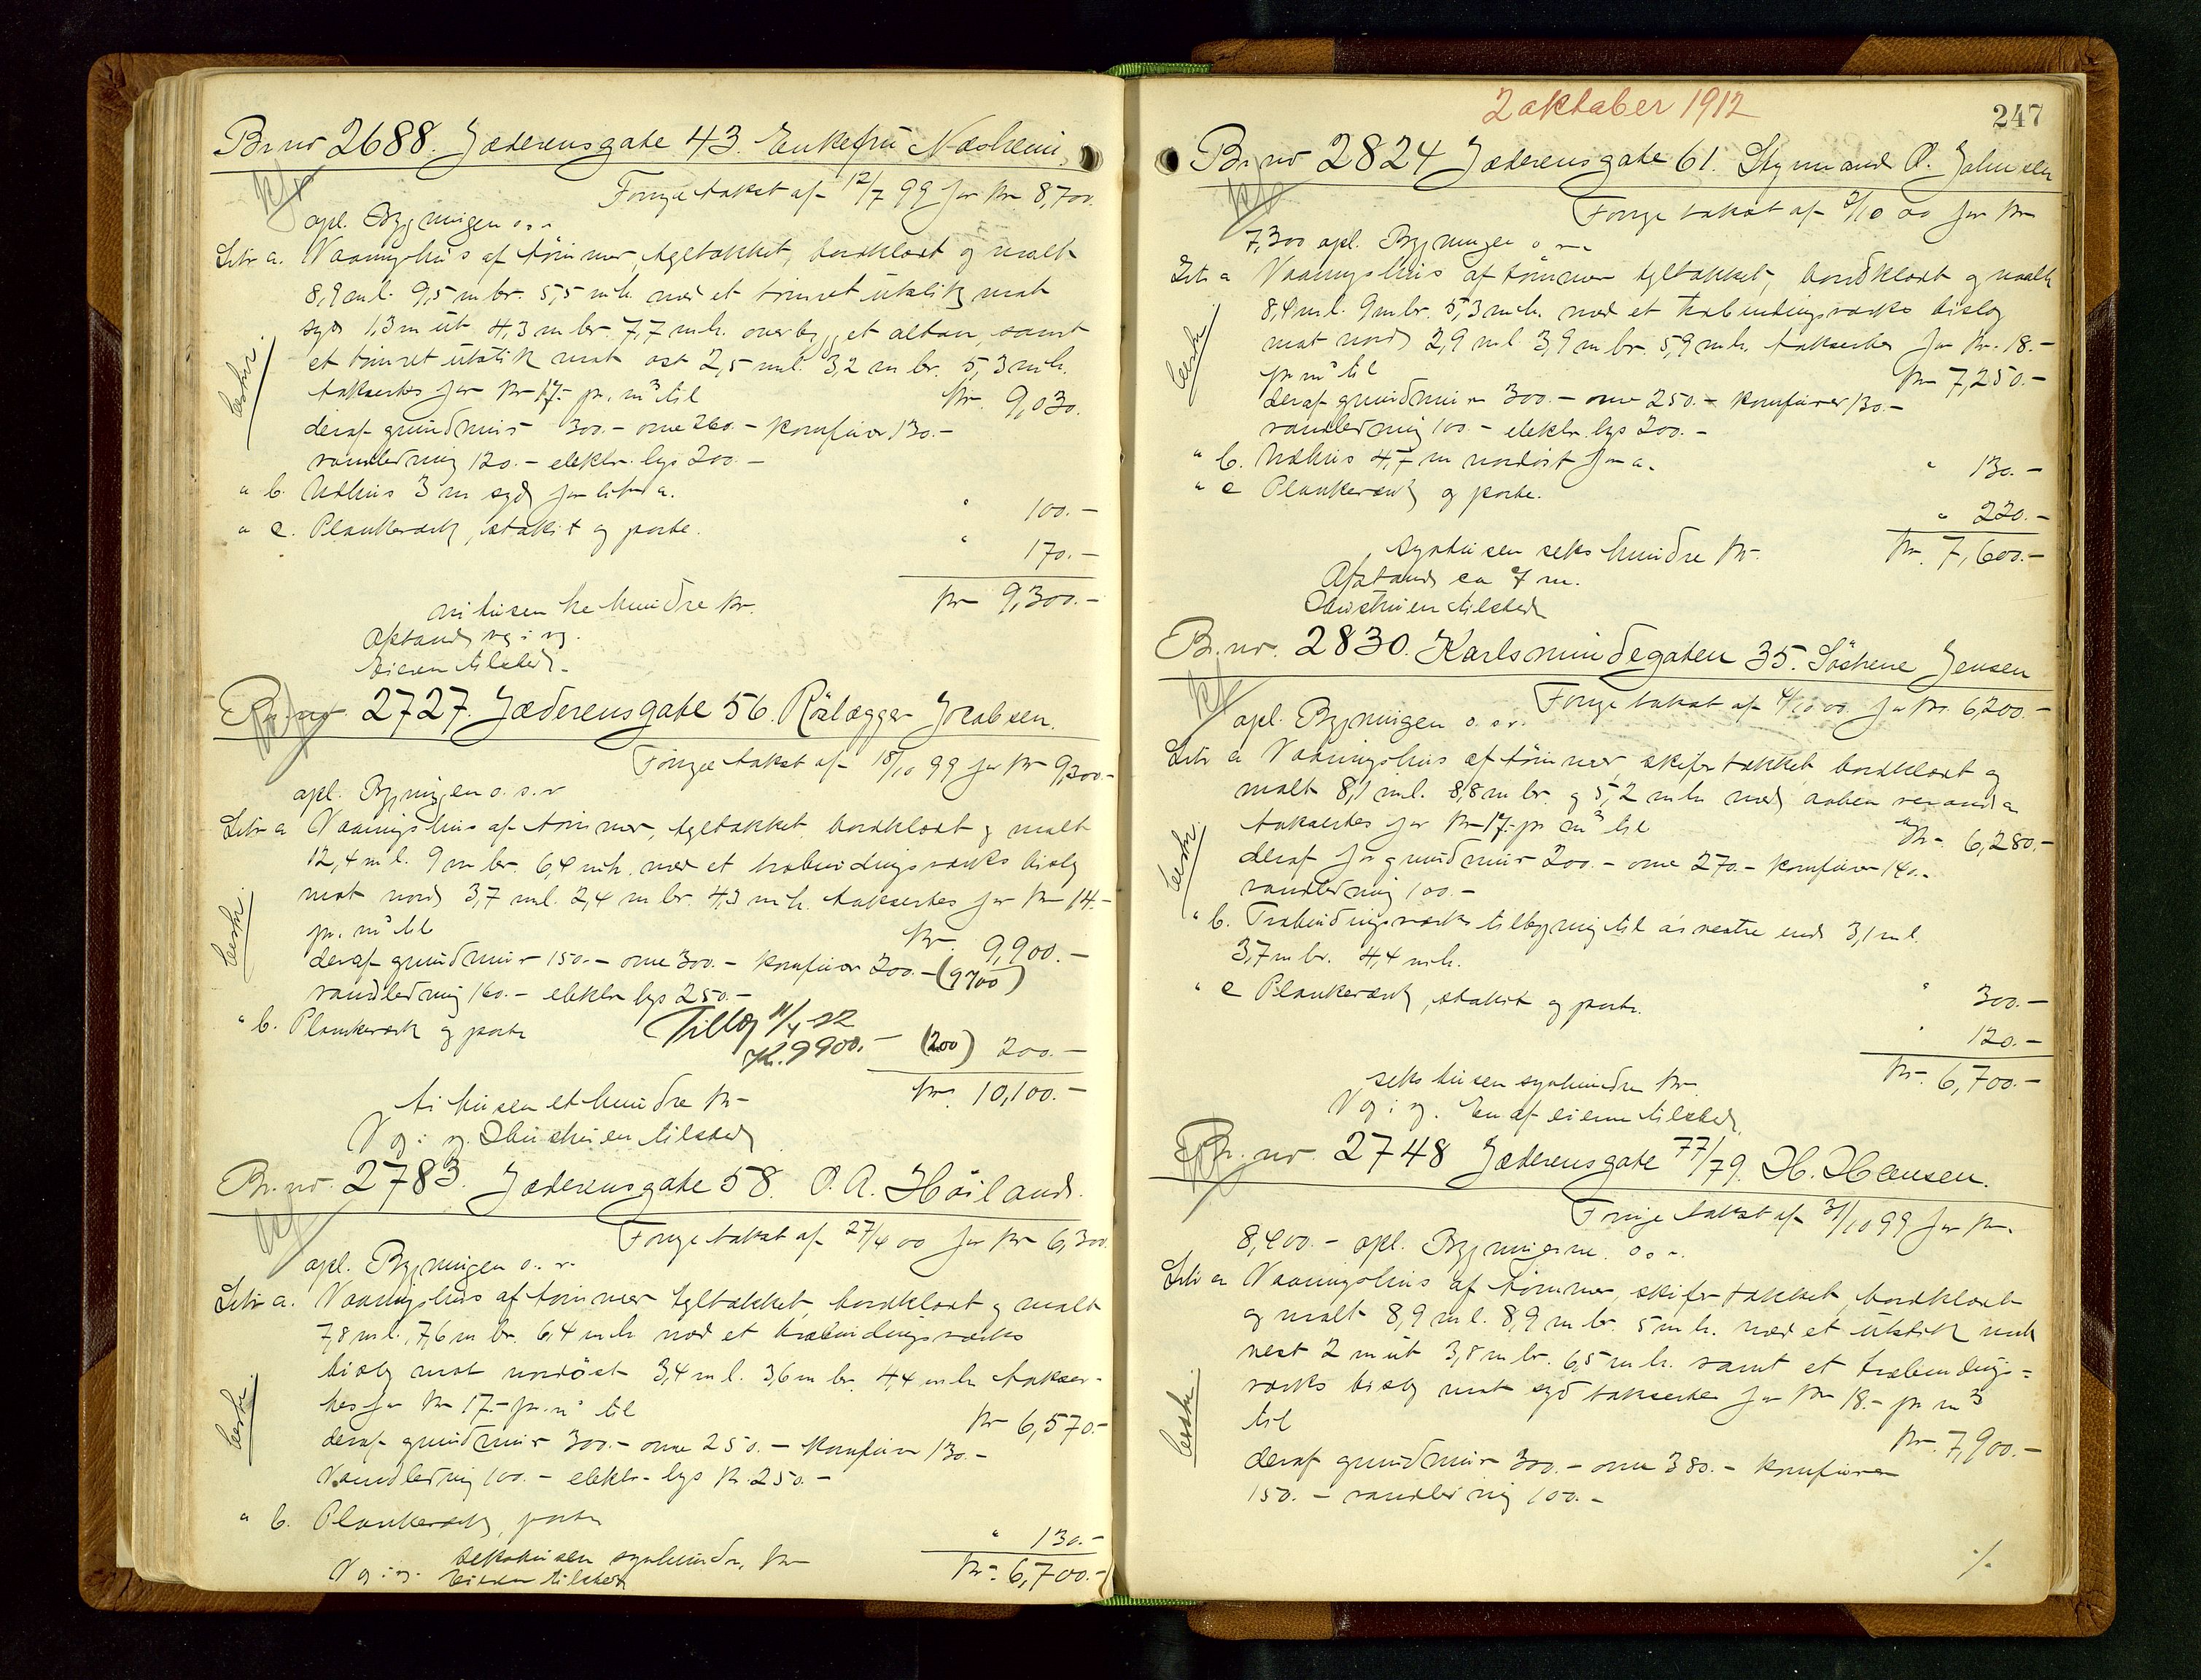 Br. nr 2688. Jæderensgate 43. Enkefru Næsheim.
Forrige takst af 12/7 99 for Kr 8,700.
opl. Bygningen o.s.v.
Litr a. Vaaningshus af tømmer, tgltækket, bordklædt og malt
8,9 m l. 9,5 m br. 5,5 m h. med et tømret utstik mot
syd 1,3 m ut 4,3 m br. 7,7 m h. overbygget altan, samt
et tømret utstik mot øst 2,5 m l. 3,2 m br. 5,3 m h.
takseres for Kr 17.- pr. m³ til Kr. 9,030.
deraf grundmur 300.- ovne 260.- komfurer 130.-
vandledning 120.- elektr. lys 200.-
" b. Uthus 3 m syd for litr a. " 100.-
" c. Plankeværk, stakit og porte. " 170.-
ni tusen tre hundre Kr. Kr 9,300.-
Afstand og i og.
Eieren tilsted.
Br. nr. 2727. Jæderensgate 56. Rørlægger Jacobsen.
Forrige takst af 18/10 99 for Kr 9,300.-
opl. Bygningen o.s.v.
Litr a Vaaningshus af tømmer, tgltækket, bordklædt og malt
12,4 m l. 9 m br. 6,4 m h. med et træbindingsværks bislag
mot nord 3,7 m l. 2,4 m br. 4,3 m h. takseres for Kr 14.-
pr. m³ til Kr. 9,900.-
deraf grundmur 150.- ovne 300.- komfurer 200.- (9700)
vandledning 160.- elektr lys 250.-
" b. Plankeværk og porte (200) 200.-
Tillæg 11/4 22
Kr. 9900.-
ti tusen et hundre Kr- Kr. 10,100.-
V og i og. Hustruen tilsted
Br. nr. 2783. Jæderensgate 58. O. A. Høiland.
Forrige takst af 27/4 00 for Kr 6,300.
opl. Bygningen o.s.v.
Litr a. Vaaningshus af tømmer tgltækket, bordklædt og malt
7,8 m l. 7,6 m br. 6,4 m h med et træbindingsværks
bislag mot nordøst 3,4 m l. 3,6 m br. 4,4 m h takse-
res for Kr 17.- pr. m³ til Kr 6,570.-
deraf grundmur 300.- ovne 250.- Komfurer 130.-
Vandledning 100.- elektr. lys Kr. 250.-
" b. Plankeværk, porte " 130.-
sekstusen syvhundre, Kr Kr. 6,700.-
V og i og. Eieren tilsted
2 oktober 1912
247
Br. nr 2824 Jæderensgate 61. Styrmand O. Johnsen
Forrige takst af 2/10 00 for Kr
7,300 opl. Bygningen o.s.v.
Litr a Vaaningshus af tømmer tgltækket, bordklædt og malt
8,4 m l. 9 m br. 5,3 m h. med et træbindingsværks bislag
mot nord 2,9 m l 3,9 m br. 5,9 m h. takseres for Kr. 18.-
pr m³ til Kr 7,250.-
deraf grundmur 300.- ovne 250.- komfurer 130.-
vandledning 100.- elektr. lys 200.-
" b. Uthus 4,7 m nordøst for a. " 130.-
" c Plankeværk og porte. " 220.-
syvtusen seks hundre Kr. Kr. 7,600.-
Afstand ca 7 m.
Hustruen tilsted
Br. nr. 2830. Karlsmindegaten 35. Søstrene Jensen
Forrige takst af 4/10 00 for Kr. 6,200.-
opl. Bygningen o.s.v.
Litr a Vaaningshus af tømmer, skifertækket bordklædt og
malt 8,1 m l. 8,8 m br. og 5,2 m h med aaben veranda
takseres for Kr 17.- pr m³ til Kr. 6,280.-
deraf for grundmur 200.- ovne 270.- komfurer 140.-
vandledning 100.-
" b. Træbindingsværks tilbygning til a's vestre ende 3,1 m l.
3,7 m br. 4,4 m h. " 300.-
" c Plankeværk, stakit og porte. " 120.-
seks tusen syvhundre Kr. Kr. 6,700.-
V og i og. En af eierne tilsted.
Br. nr. 2748 Jæderensgate 77/79. H. Hansen.
Forrige takst af 31/10 99 for Kr.
8,400.- opl. Bygningerne o.s.v.
Litr a Vaaningshus af tømmer, skifertækket, bordklædt
og malt 8,9 m l. 8,9 m br. 5 m h. med et utstik mot
vest 2 m ut 3,8 m br. 6,5 m h. samt et træbindings=
værks bislag mot syd takseres for Kr 18.- pr m³
til Kr. 7,900.-
deraf grundmur 300.- ovne 380.- komfurer
150.- vandledning 100.-
./.